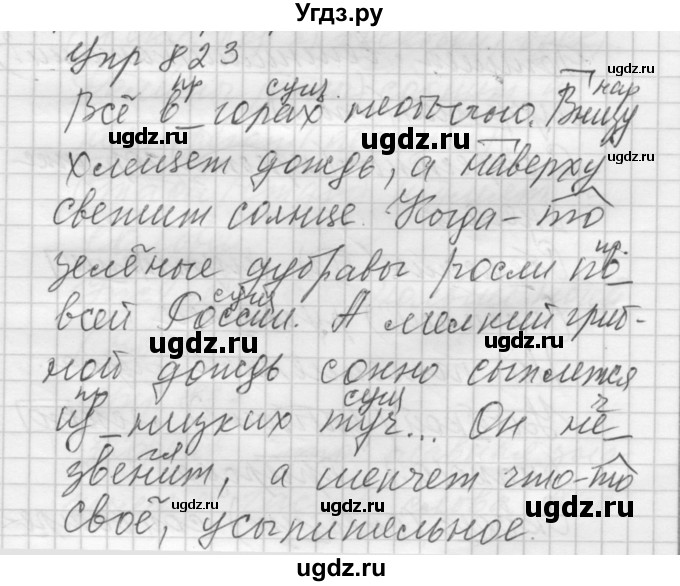 Угдз.ру
Упр 823
пр сущ нар
Всё в_горах необычно. Внизу
хлещет дождь, а наверху
светит солнце. Когда-то
пр.
зелёные дубравы росли по_
сущ
всей России. А мелкий гриб-
ной дождь сонно сыплется
пр сущ ч
из_низких туч... Он не_
гл
звенит, а шепчет что-то
своё, усыпительное.
ugdz.ru
ugdz.ru
ugdz.ru
ugdz.ru
ugdz.ru
ugdz.ru
ugdz.ru
ugdz.ru
ugdz.ru
ugdz.ru
ugdz.ru
ugdz.ru